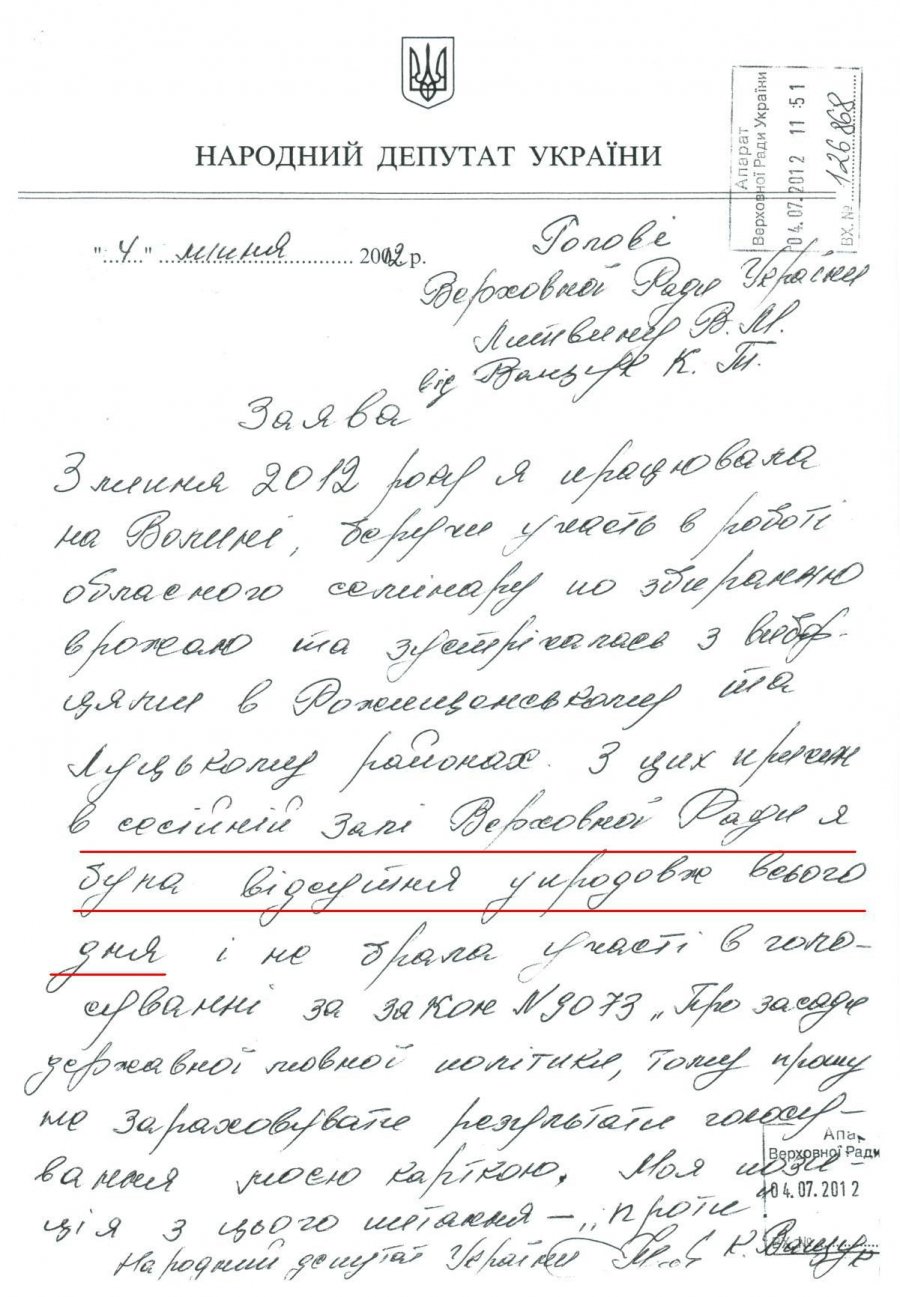 НАРОДНИЙ ДЕПУТАТ УКРАЇНИ
Апарат
Верховної Ради України
04.07.2012 11:51
ВХ. № 126868
"4" липня 2012 р.
Голові
Верховної Ради України
Литвину В. М.
від Ващук К. Т.
Заява
3 липня 2012 року я працювала
на Волині, беручи участь в роботі
обласного семінару по збиранню
врожаю та зустрічалась з вибор-
цями в Рожищенському та
Луцькому районах. З цих причин
в сесійній залі Верховної Ради я
була відсутня упродовж всього
дня і не брала участі в голо-
суванні за закон N 9073 „Про засади
державної мовної політики, тому прошу
не зараховувати результати голосу-
вання моєю карткою. Моя пози-
ція з цього питання – „проти"
Народний депутат України К. Ващук
Апа
Верховної Ради
04.07.2012
ВХ. №